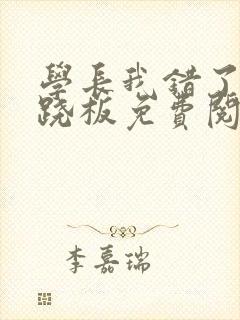 學長我錯了
跷板免費閱
李嘉瑞